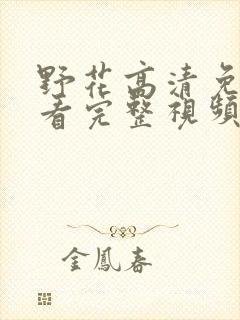 野花高清免
看完整視頻
金鳳春